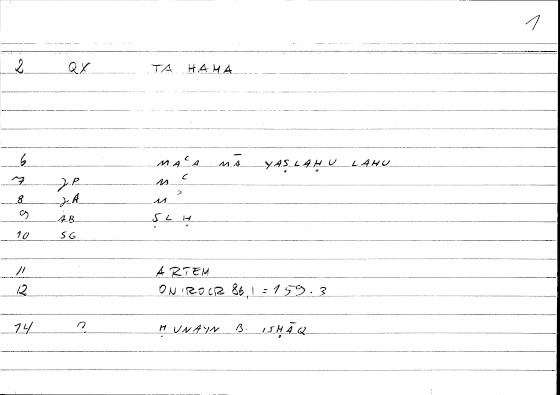 1
2 QX TA HAMA
6 MAʿA MĀ YAṢLAḤU LAHU
7 JP M ʿ
8 JA M ʾ
9 AB Ṣ L Ḥ
10 SG
11 ARTEM
12 ONIROCR 86,1 = 159.3
14 ? ḤUNAYN B. ISḤĀQ